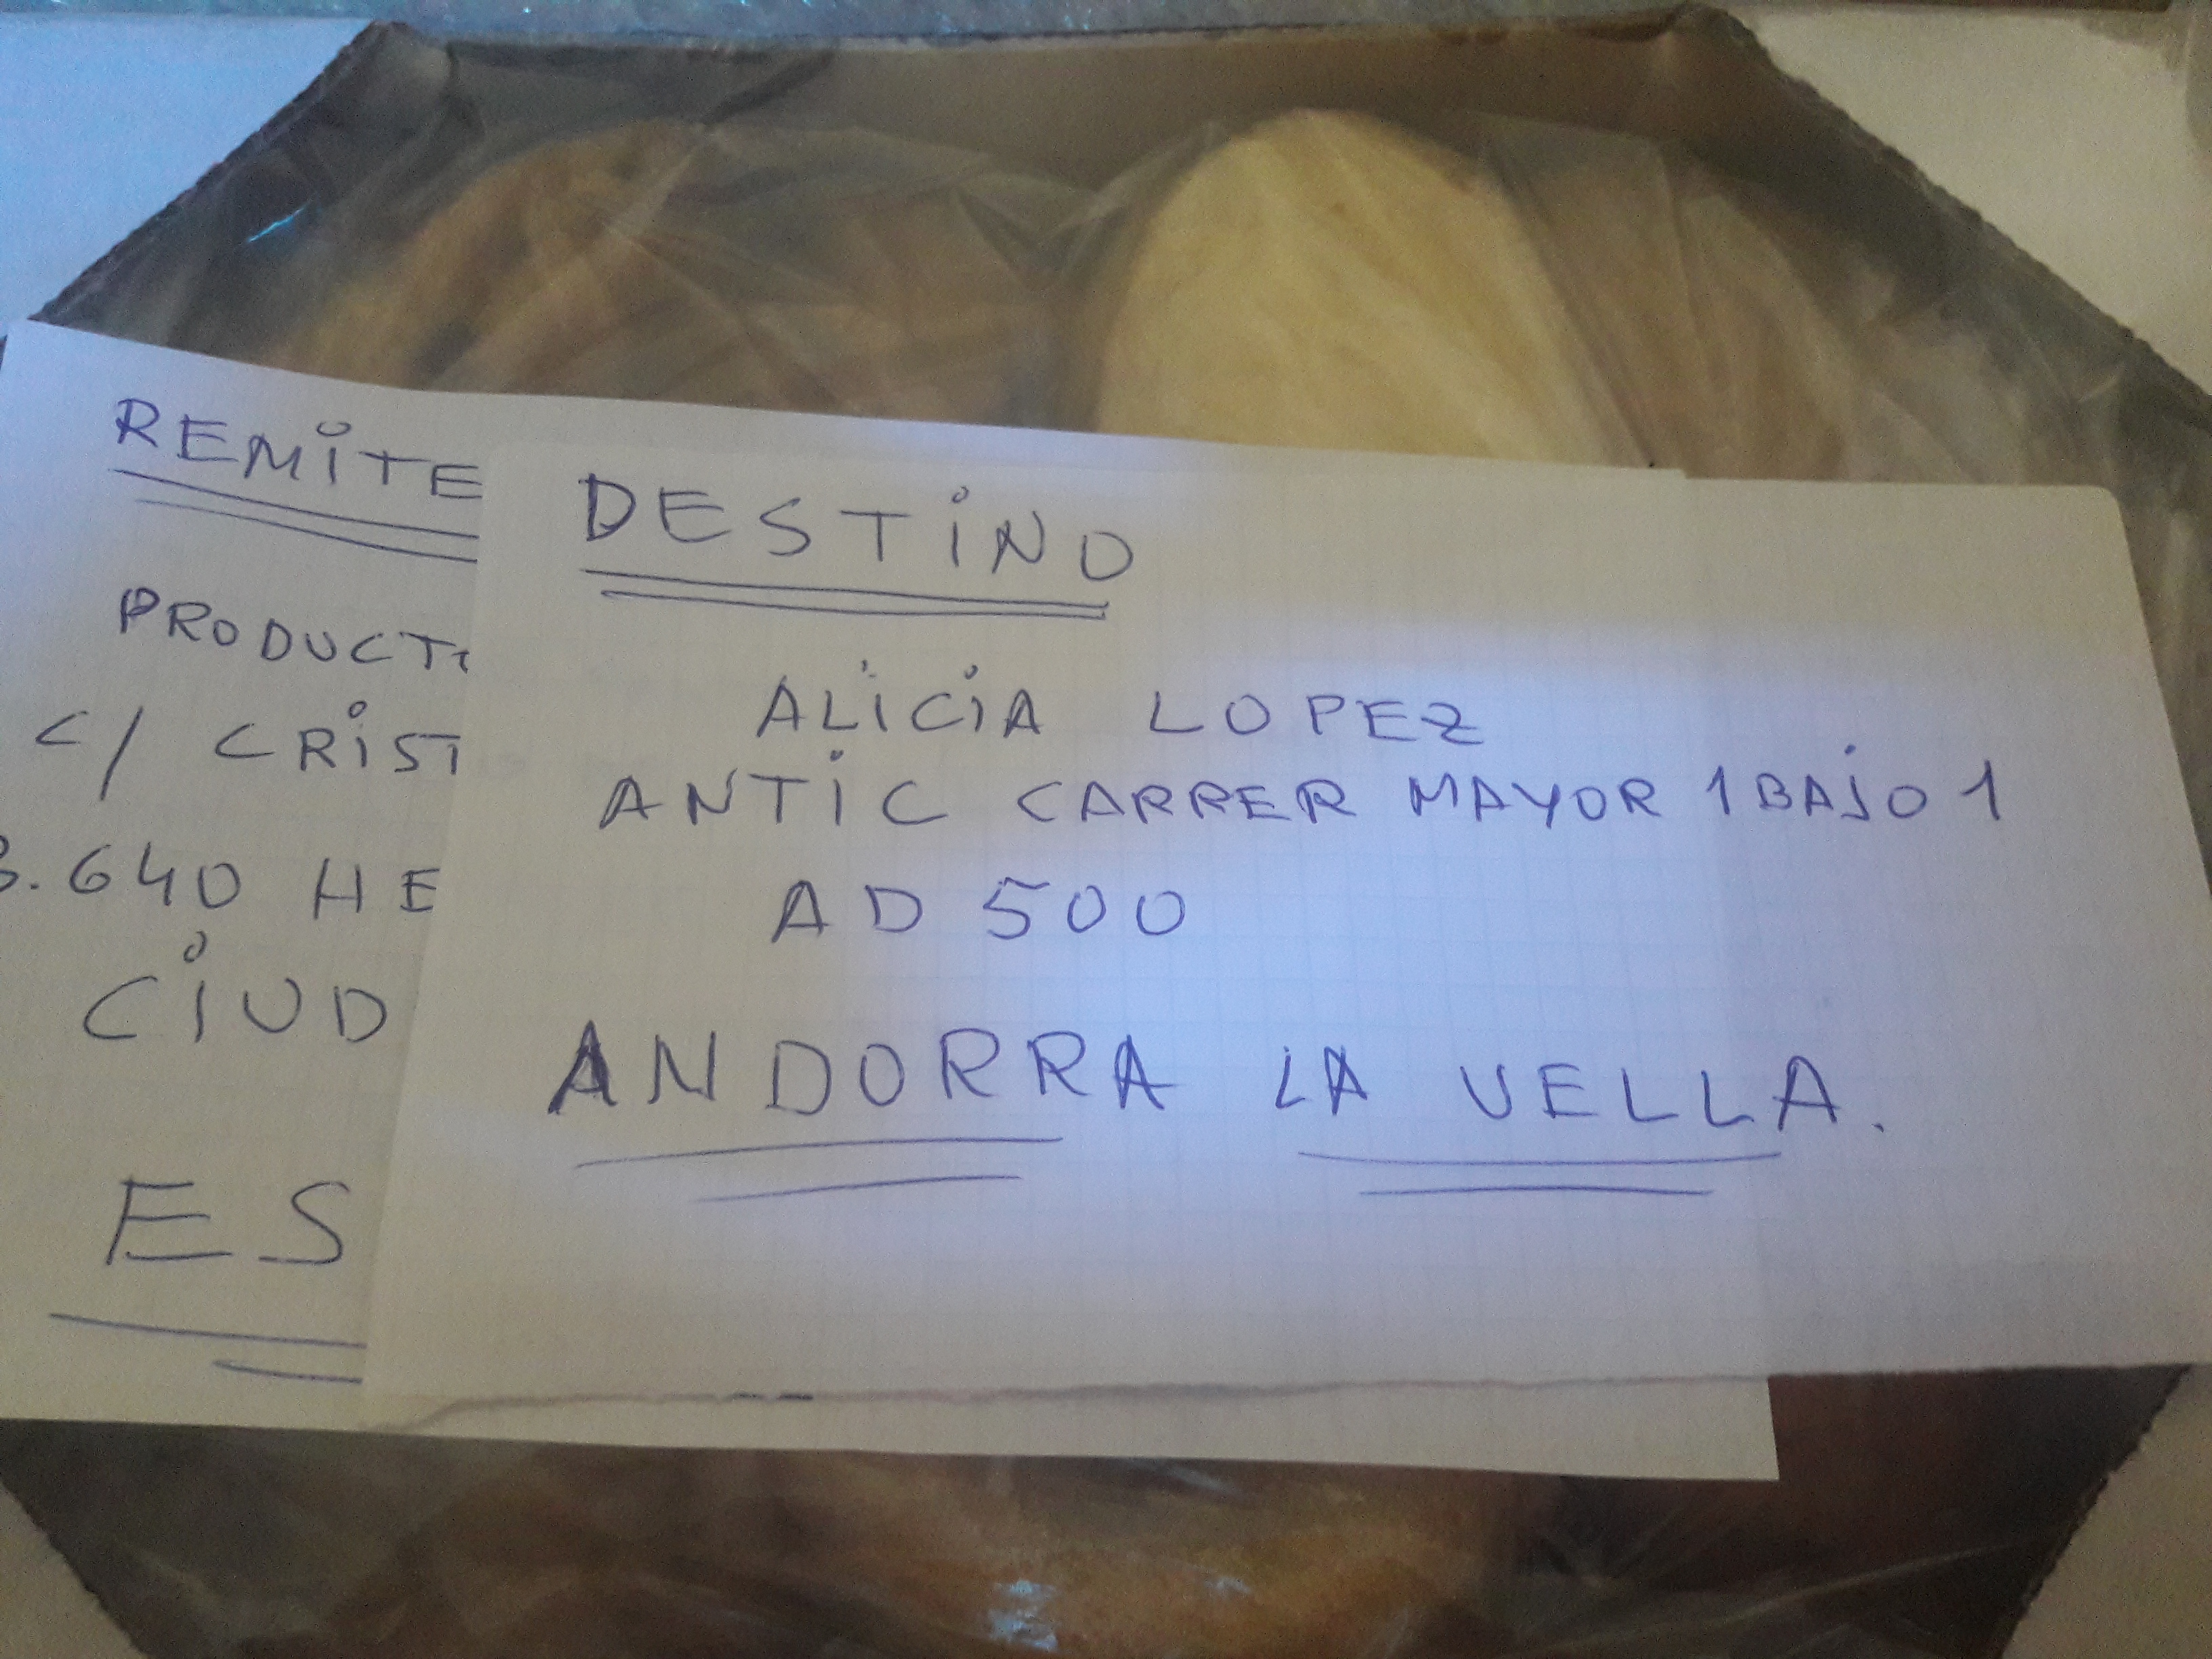 REMITE
PRODUCT
C/ CRIST
.640 HE
CIUD
ES
DESTINO
ALICIA LOPEZ
ANTIC CARRER MAYOR 1 BAJO 1
AD 500
ANDORRA LA VELLA.